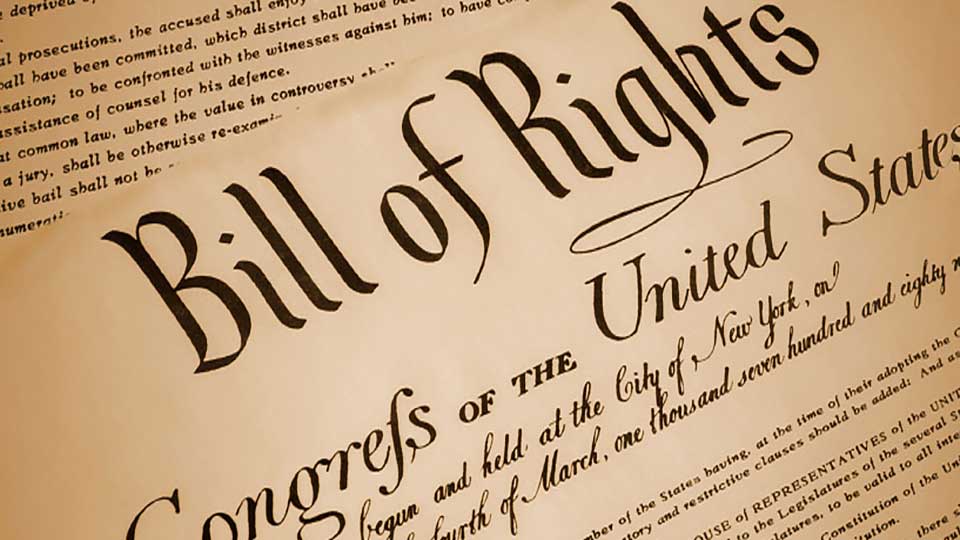 deprived
al prosecutions, the accused shall enjoy
all have been committed, which district shall have
sation; to be confronted with the witnesses against him; to have
assistance of counsel for his defence.
at common law, where the value in controversy
a jury, shall be otherwise
ive bail shall not
Bill of Rights
Congreſs OF THE United States
begun and held at the City of New York, on
fourth of March, one thousand seven hundred and eighty
mber of the States having, at the time of their adopting the
tory and restrictive clauses should be added: And as
OUSE of REPRESENTATIVES of the UNIT
to the Legislatures of the several
latures, to be valid to all
Constitution of the
tution.
there